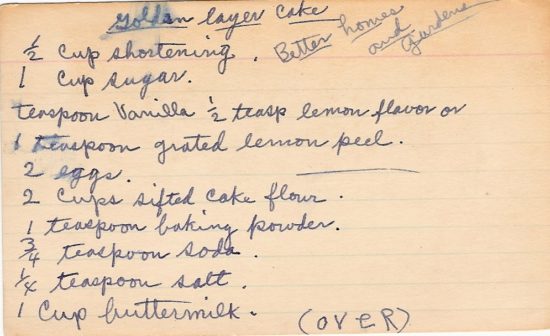 Golden layer cake
Better homes and Gardens
1/2 Cup shortening.
1 Cup sugar.
teaspoon Vanilla 1/2 teasp lemon flavor or
1 teaspoon grated lemon peel.
2 eggs.
2 Cups sifted cake flour.
1 teaspoon baking powder.
3/4 teaspoon soda.
1/4 teaspoon salt.
1 Cup buttermilk.
(OVER)